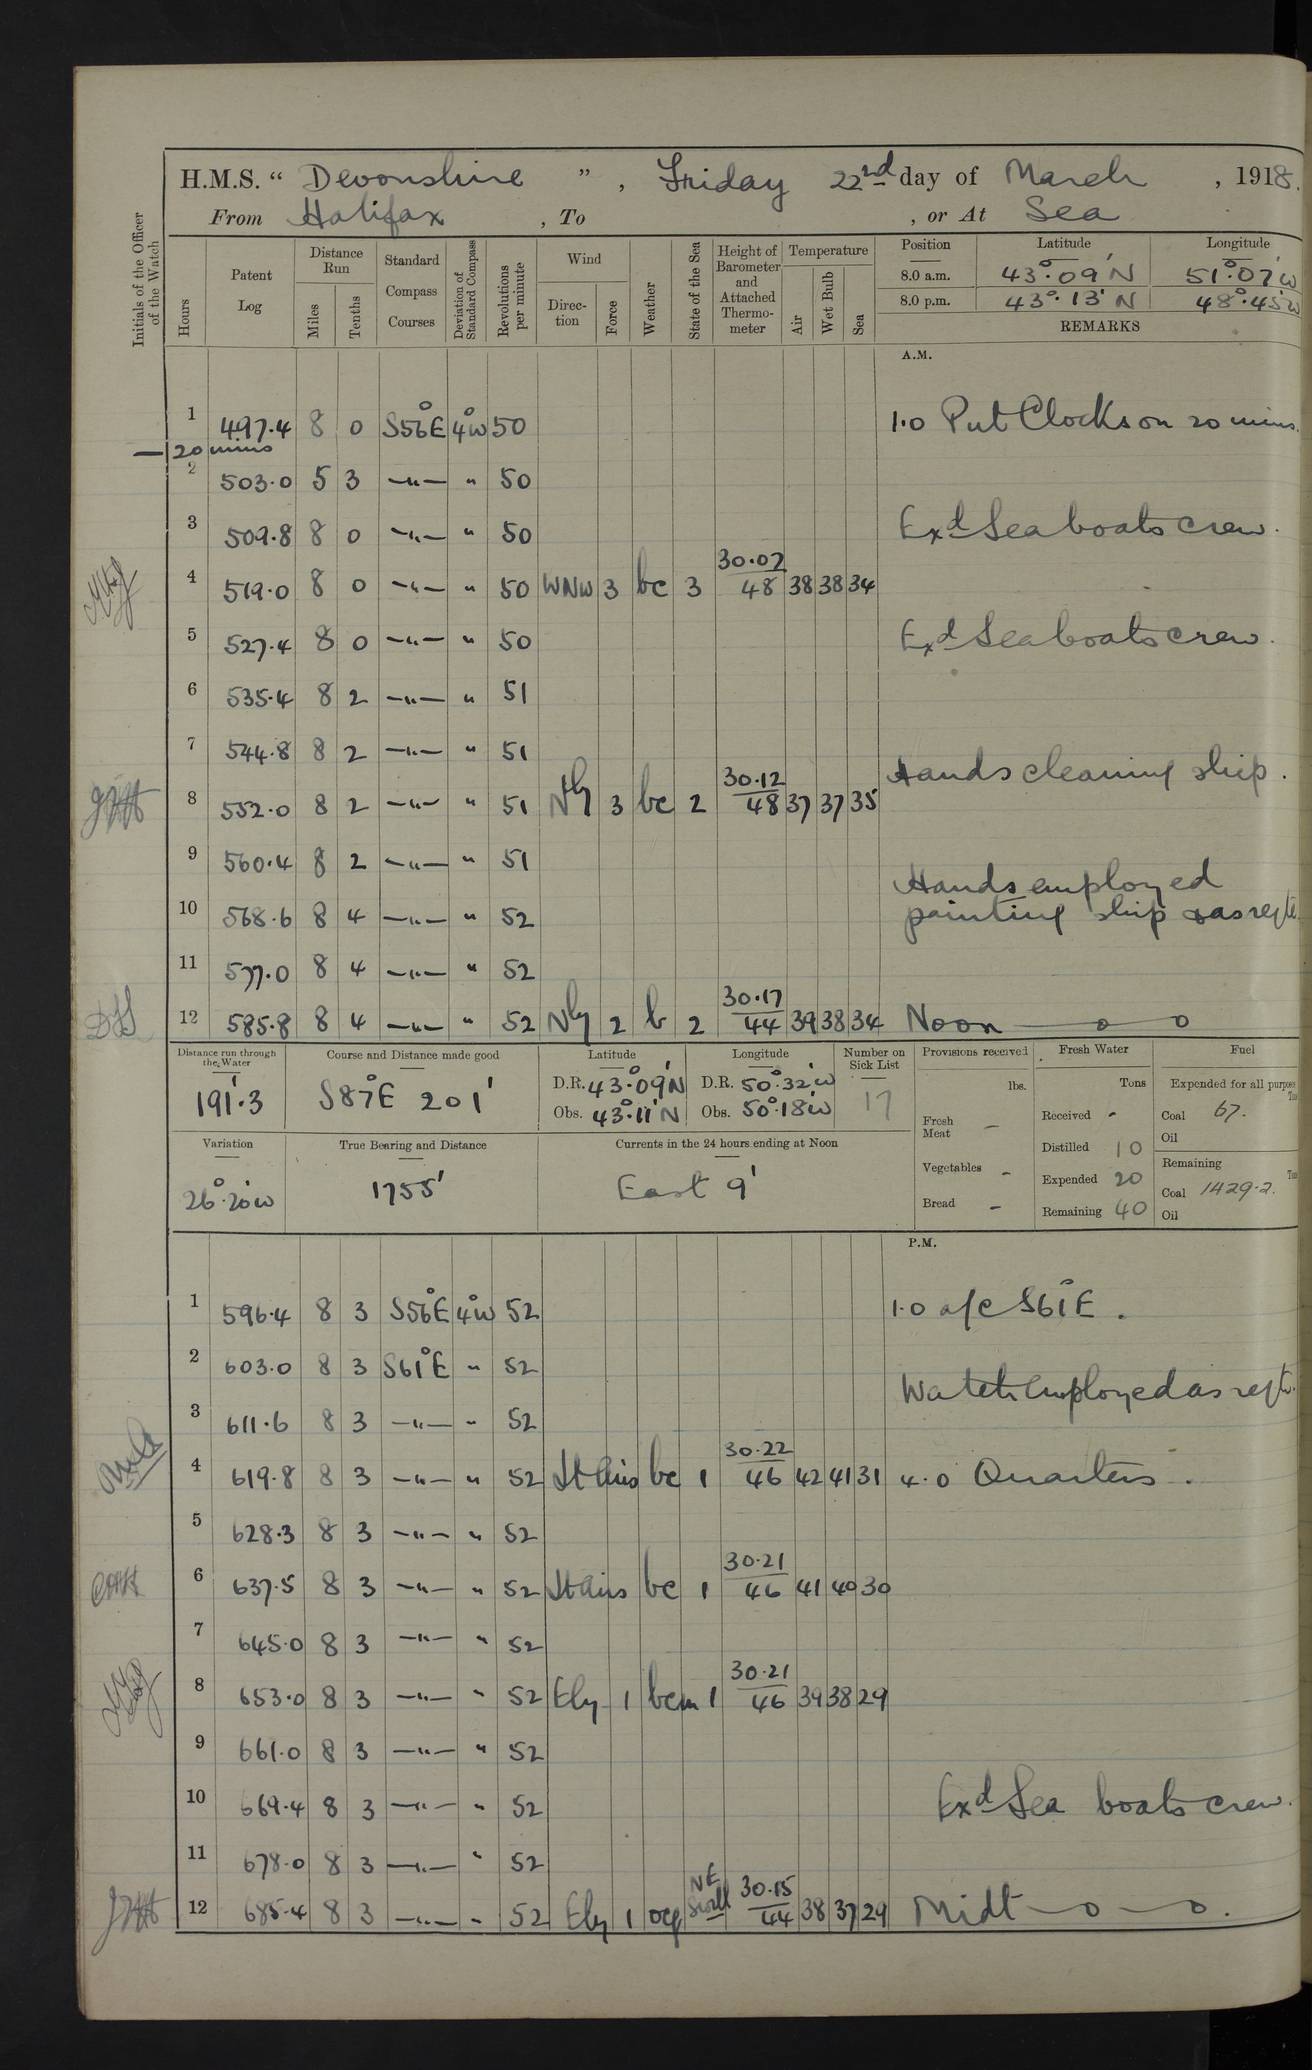 H.M.S. “ Devonshire ” , Friday 22nd day of March , 1918.
From Halifax , To , or At Sea
Initials of the Officer of the Watch
Hours
Patent Log
Distance Run
Miles
Tenths
Standard Compass Courses
Deviation of Standard Compass
Revolutions per minute
Wind
Direction
Force
Weather
State of the Sea
Height of Barometer and Attached Thermometer
Temperature
Air
Wet Bulb
Sea
Position Latitude Longitude
8.0 a.m. 43°·09'N 51°·07'W
8.0 p.m. 43°·13'N 48°·45'W
REMARKS
A.M.
1 497·4 8 0 S56°E 4°W 50 1·0 Put Clocks on 20 mins.
—20 mins
2 503·0 5 3 —"— " 50
3 509·8 8 0 —"— " 50 Exd Sea boats crew.
4 519·0 8 0 —"— " 50 WNW 3 bc 3 30·07 48 38 38 34
5 527·4 8 0 —"— " 50 Exd Sea boats crew.
6 535·4 8 2 —"— " 51
7 544·8 8 2 —"— " 51 Hands cleaning ship.
8 552·0 8 2 —"— " 51 Nly 3 bc 2 30·12 48 37 37 35
9 560·4 8 2 —"— " 51 Hands employed
10 568·6 8 4 —"— " 52 painting ship & as reqte
11 577·0 8 4 —"— " 52
12 585·8 8 4 —"— " 52 Nly 2 b 2 30·17 44 39 38 34 Noon — o o
Distance run through the Water
191'·3
Course and Distance made good
S87°E 201'
Latitude
D.R. 43°·09'N
Obs. 43°·11'N
Longitude
D.R. 50°·32'W
Obs. 50°·18'W
Number on Sick List
17
Variation
26°·20'W
True Bearing and Distance
1755'
Currents in the 24 hours ending at Noon
East 9'
Provisions received
lbs.
Fresh Meat —
Vegetables —
Bread —
Fresh Water
Tons
Received -
Distilled 10
Expended 20
Remaining 40
Fuel
Expended for all purposes
Coal 67.
Oil
Remaining
Coal 1429·2.
Oil
P.M.
1 596·4 8 3 S56°E 4°W 52 1·0 a/c S61°E.
2 603·0 8 3 S61°E " 52 Watch employed as reqte.
3 611·6 8 3 —"— " 52
4 619·8 8 3 —"— " 52 Lt Airs bc 1 30·22 46 42 41 31 4·0 Quarters.
5 628·3 8 3 —"— " 52
6 637·5 8 3 —"— " 52 Lt Airs bc 1 30·21 46 41 40 30
7 645·0 8 3 —"— " 52
8 653·0 8 3 —"— " 52 Ely 1 bcm 1 30·21 46 39 38 29
9 661·0 8 3 —"— " 52
10 669·4 8 3 —"— " 52 Exd Sea boats crew.
11 678·0 8 3 —"— " 52
12 685·4 8 3 —"— " 52 Ely 1 ocp NE Swell 30·15 44 38 37 29 Midt — o — o.